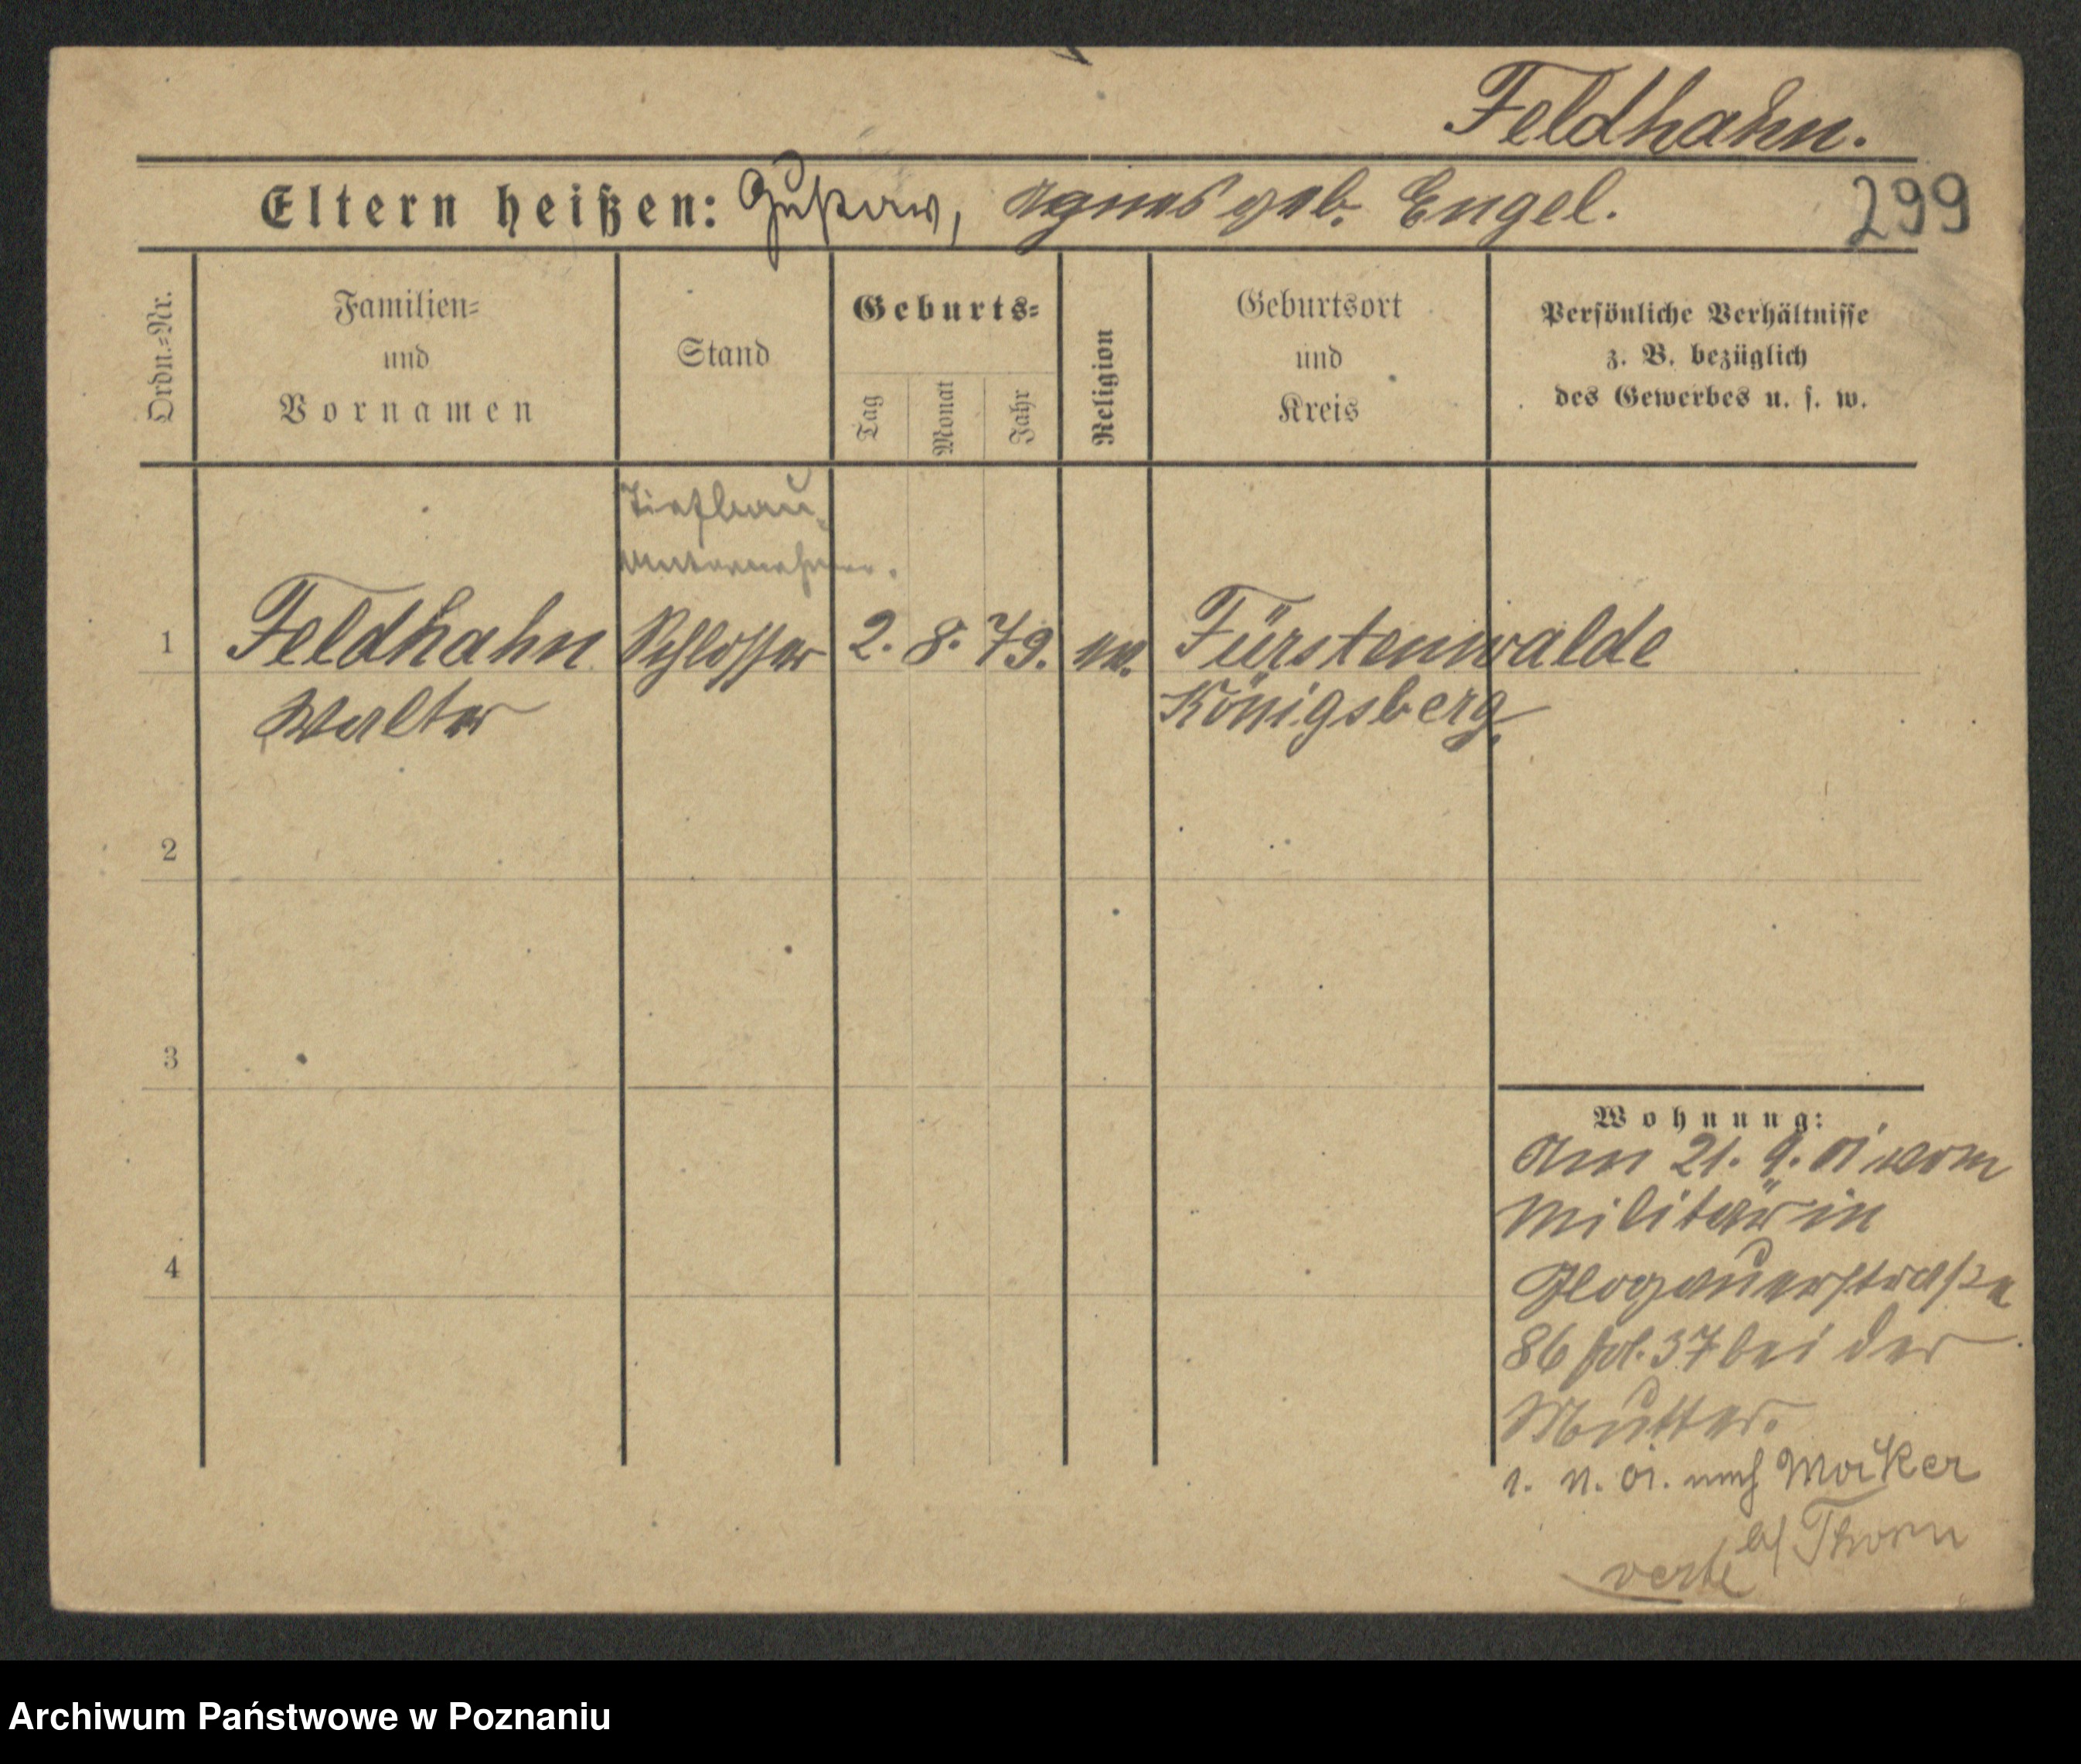 Feldhahn.
Eltern heißen: Gustav, Agnes geb. Engel.
299
Ordn.-Nr.
Familien-
und
Vornamen
Stand
Geburts-
Tag
Monat
Jahr
Religion
Geburtsort
und
Kreis
Persönliche Verhältnisse
z. B. bezüglich
des Gewerbes u. s. w.
Tiefbau-
Unternehmer.
1 Feldhahn Schlosser 2. 8. 79. ev. Fürstenwalde
Walter Königsberg
2
3
4
Wohnung:
Am 21. 9. 01 vom
Militär in
Glogauerstraße
86 fol. 37 bei der
Mutter.
1. 11. 01. nach Mocker
b/ Thorn
verte
Archiwum Państwowe w Poznaniu